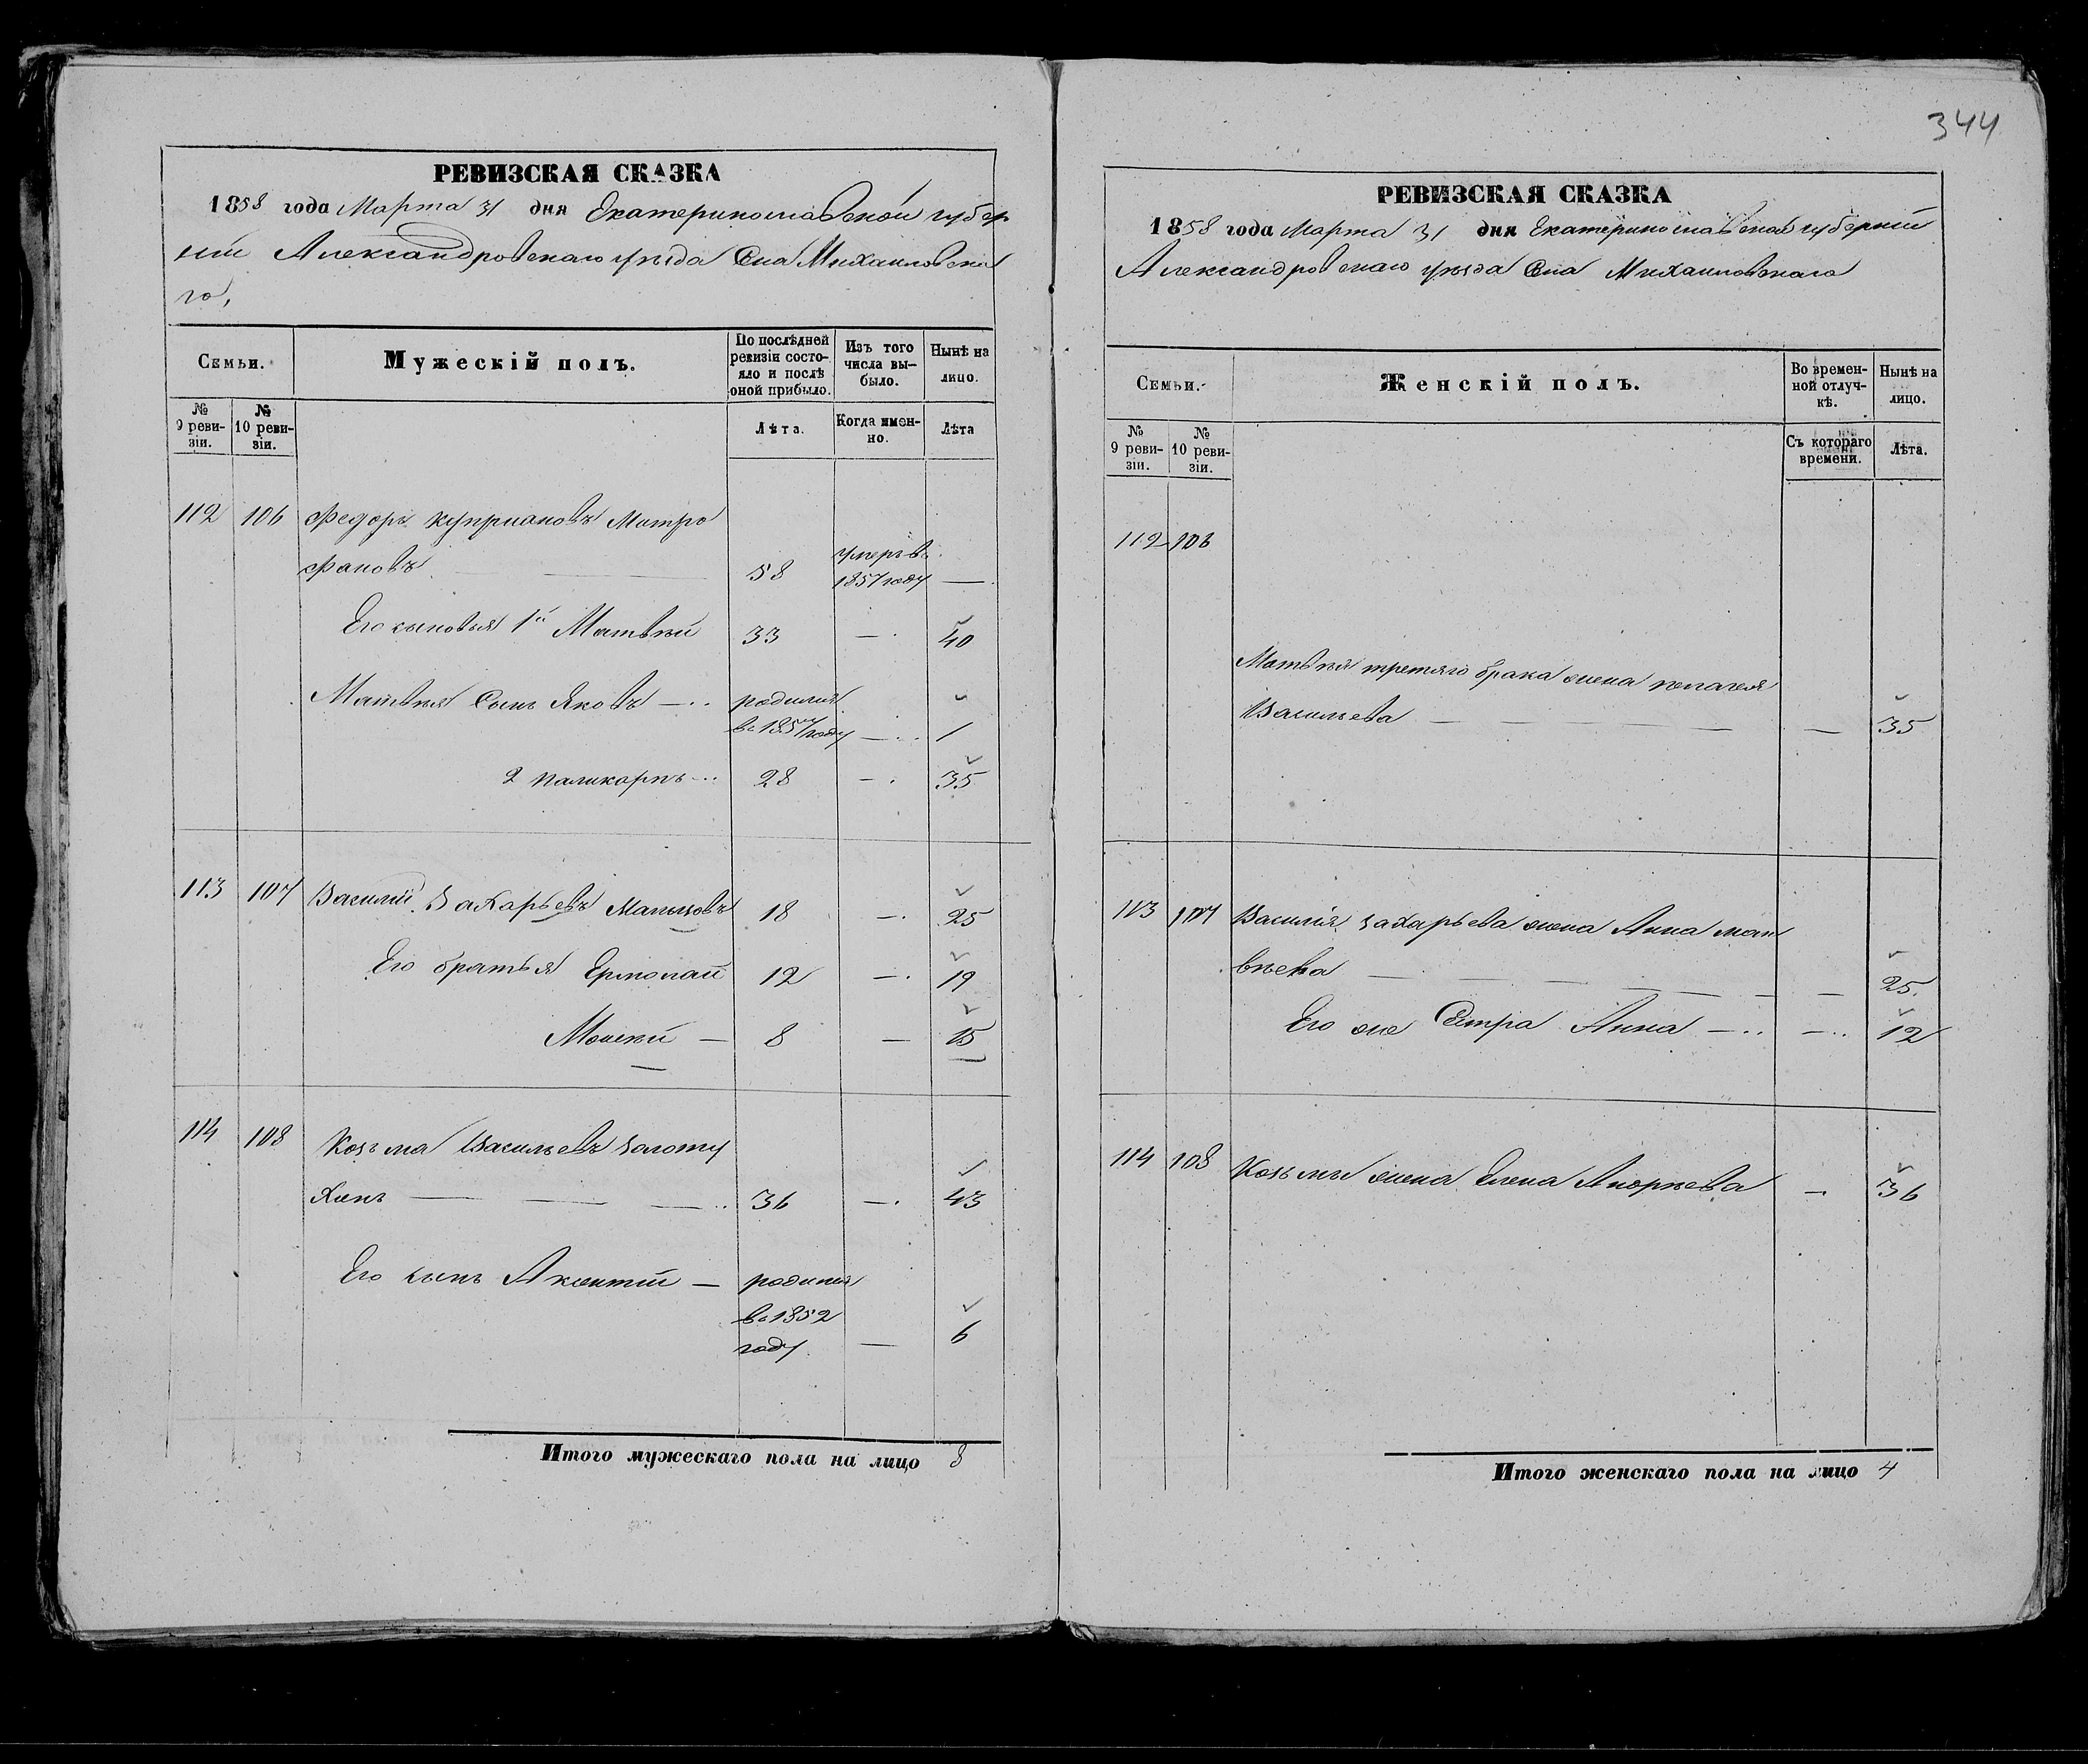 344
РЕВИЗСКАЯ СКАЗКА
1858 года Марта 31 дня Екатеринославской губер
нiи Александровскаго уѣзда Села Михайловска
го,
Семьи.
Мужескiй полъ.
По послѣдней ревизiи состояло и послѣ оной прибыло.
Изъ того числа выбыло.
Нынѣ на лицо.
№ 9 ревизiи.
№ 10 ревизiи.
Лѣта.
Когда именно.
Лѣта
112 106 Федоръ Куприановъ Митро
фановъ 58 умеръ въ 1857 году —
Его сыновья 1й Матвѣй 33 — 40
Матвѣя Сынъ Яковъ — родился въ 1857 году — 1
2 Паликорпъ 28 — 35
113 107 Василiй Захарьевъ Мальцовъ 18 — 25
Его братья Ермолай 12 — 19
Моисѣй — 8 — 15
114 108 Козьма Васильевъ Золоту
хинъ 36 — 43
Его сынъ Аксентiй — родился въ 1852 году — 6
Итого мужескаго пола на лицо 8
РЕВИЗСКАЯ СКАЗКА
1858 года Марта 31 дня Екатеринославской губернiи
Александровскаго уѣзда Села Михайловскаго
Семьи.
Женскiй полъ.
Во временной отлучкѣ.
Нынѣ на лицо.
№ 9 ревизiи.
№ 10 ревизiи.
Съ котораго времени.
Лѣта.
112 106
Матвѣя третяго брака жена Пелагея
Васильева — — 35
113 107 Василiя Захарьева жена Анна Мат
вѣева — — 25
Его же Сестра Анна — — 12
114 108 Козьмы жена Елена Андрѣева — 36
Итого женскаго пола на лицо 4